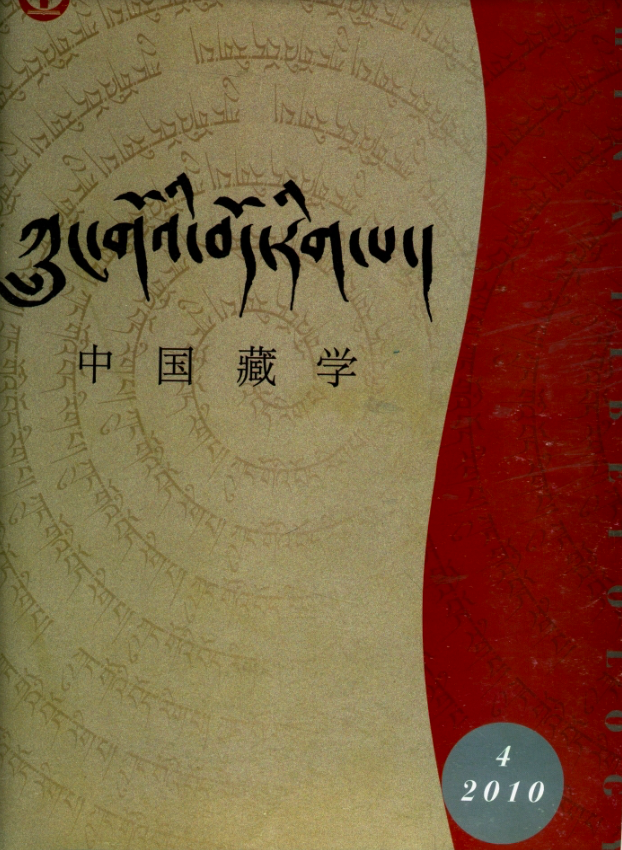 ཀྲུང་གོའི་བོད་རིག་པ།
中国藏学
4
2010